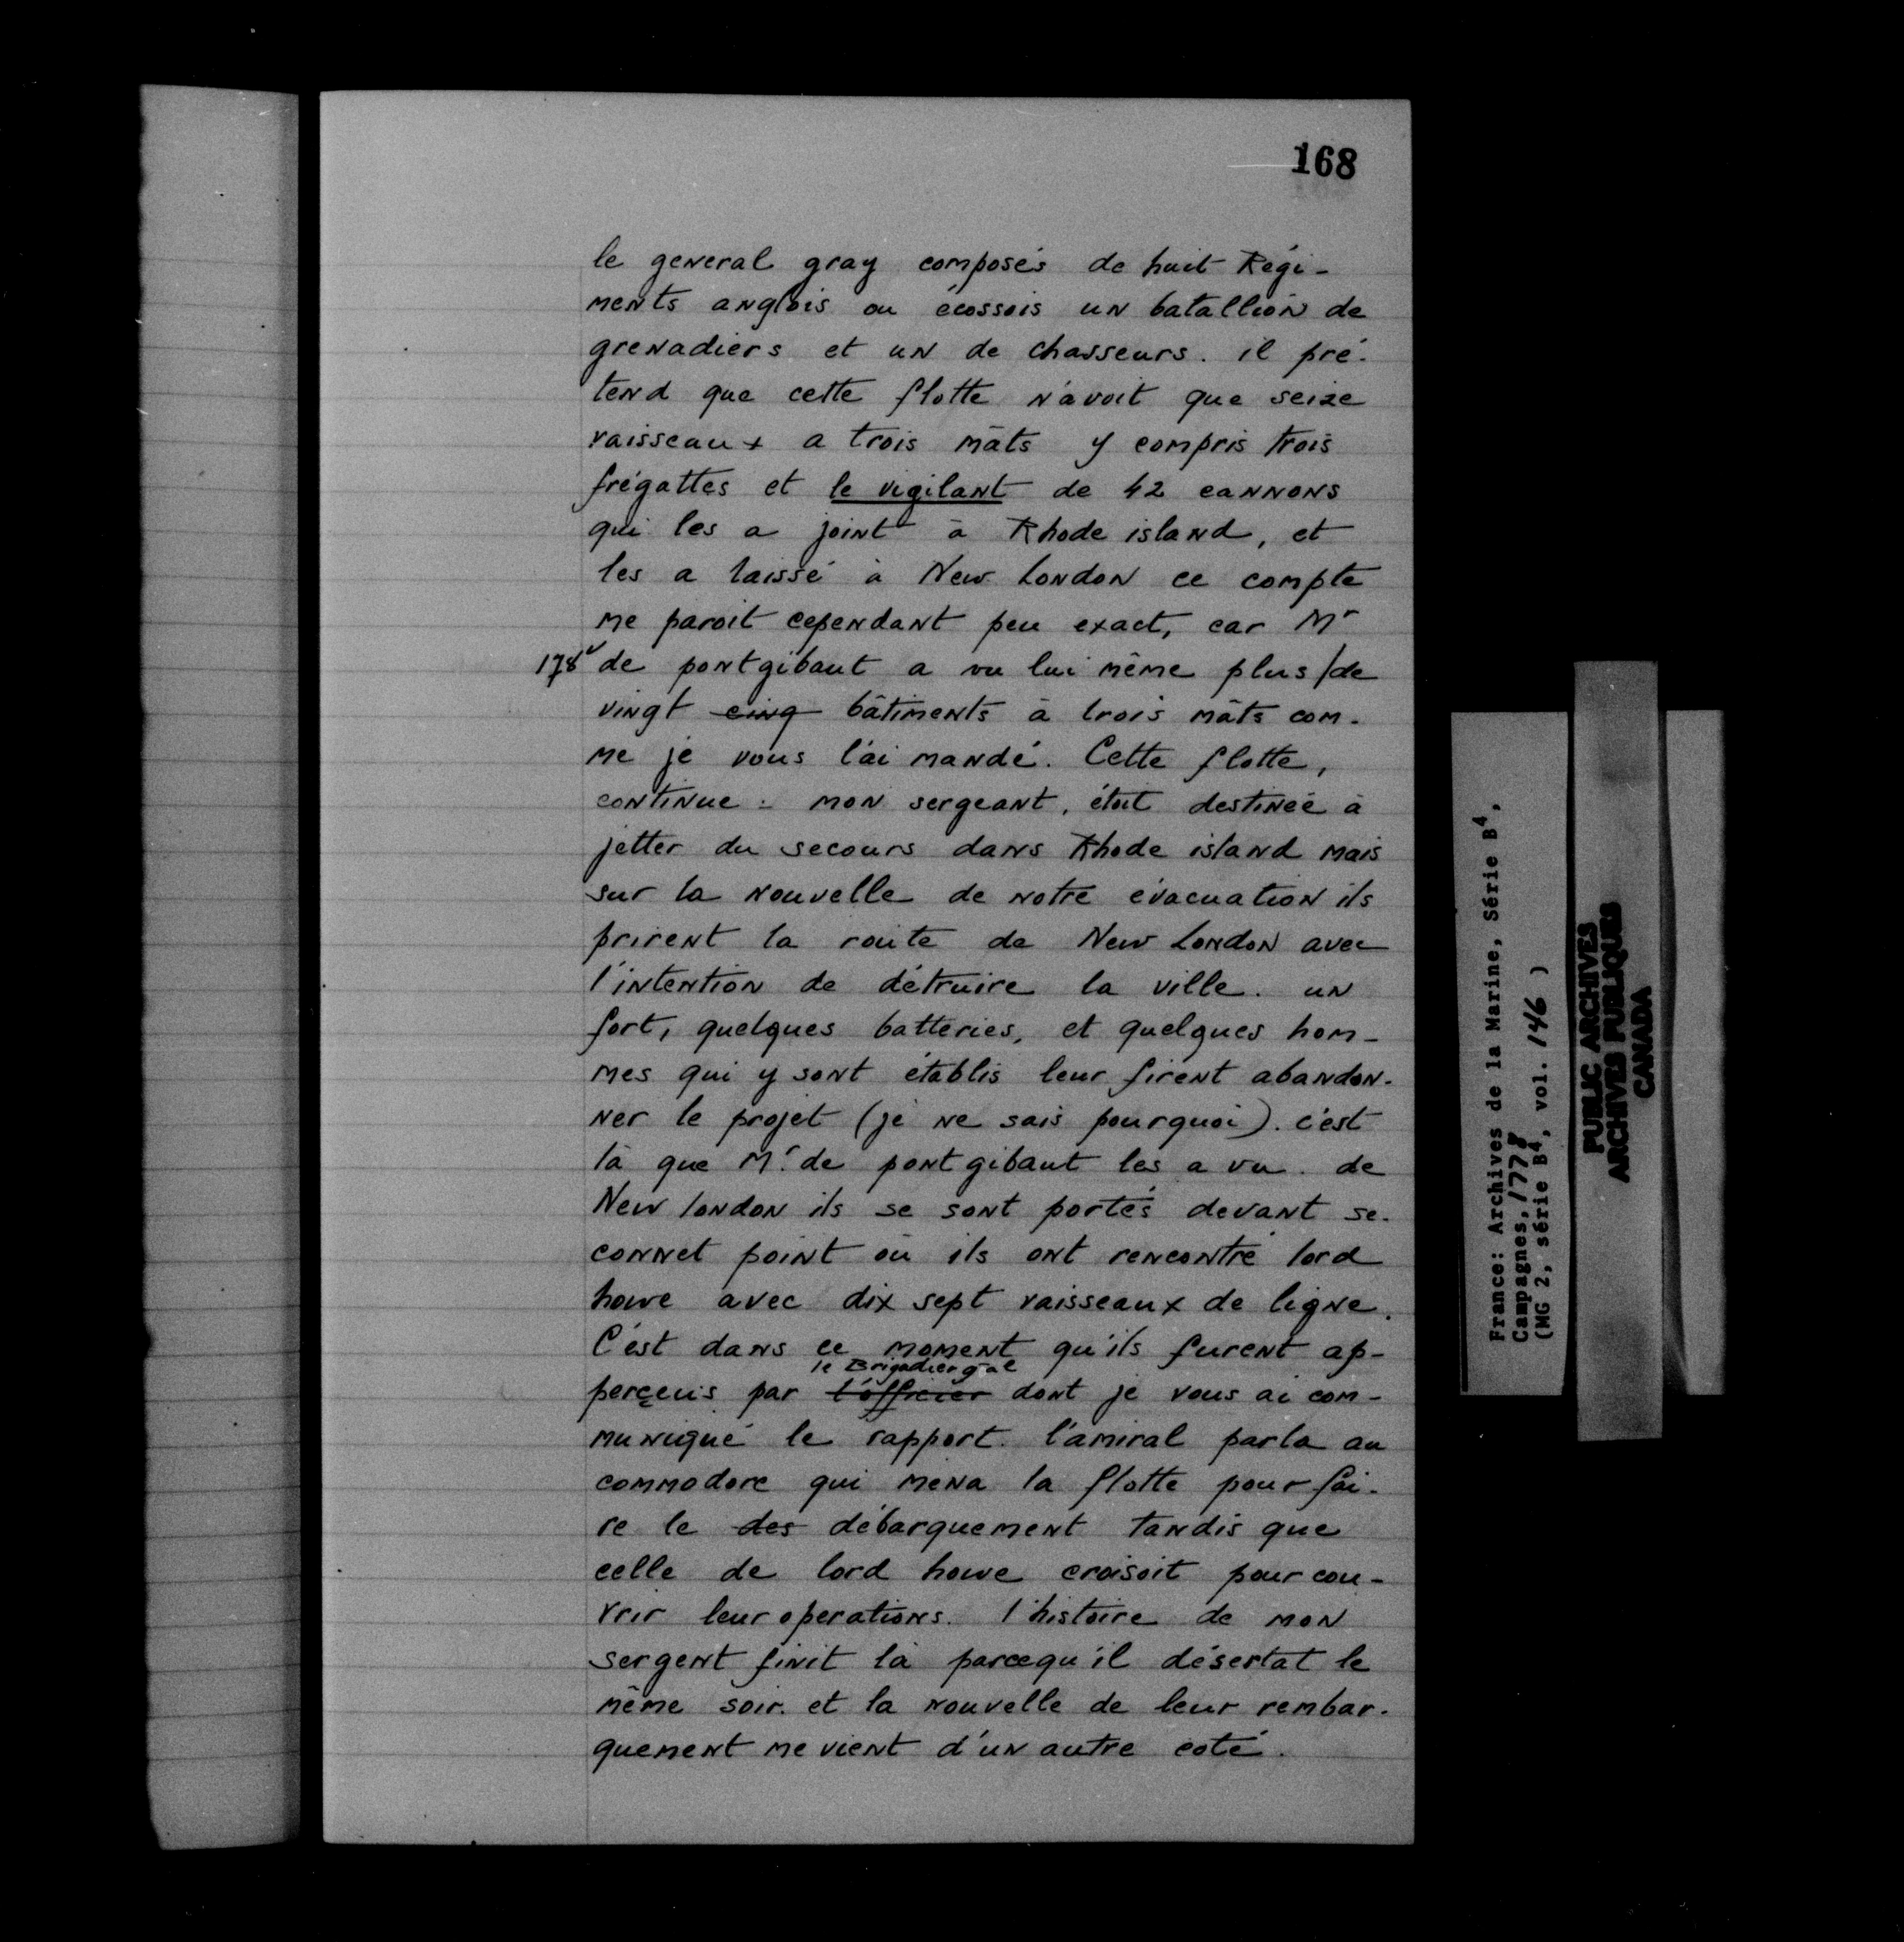 168
le general gray composés de huit Régi-
ments anglois ou écossois un batallion de
grenadiers et un de chasseurs. il pré-
tend que cette flotte n'avoit que seize
vaisseaux a trois mâts y compris trois
frégattes et le vigilant de 42 cannons
qui les a joint à Rhode island, et
les a laissé à New London ce compte
me paroit cependant peu exact, car Mr
178v de pontgibaut a vu lui même plus/de
vingt cinq bâtiments à trois mâts com-
me je vous l'ai mandé. Cette flotte,
continue : mon sergeant, étoit destinée à
jetter du secours dans Rhode island mais
sur la nouvelle de notre évacuation ils
prirent la route de New London avec
l'intention de détruire la ville. un
fort, quelques batteries, et quelques hom-
mes qui y sont établis leur firent abandon-
ner le projet (je ne sais pourquoi). c'est
là que Mr de pontgibaut les a vu. de
New london ils se sont portés devant se-
connet point où ils ont rencontré lord
howe avec dix sept vaisseaux de ligne.
C'est dans ce moment qu'ils furent ap-
le Brigadier gal
perçeus par l'officier dont je vous ai com-
muniqué le rapport. l'amiral parla au
commodore qui mena la flotte pour fai-
re le des débarquement tandis que
celle de lord howe croisoit pour cou-
vrir leur operations. l'histoire de mon
sergent finit là parcequ'il désertat le
même soir. et la nouvelle de leur rembar-
quement me vient d'un autre coté.
France: Archives de la Marine, Série B4,
Campagnes, 1778
(MG 2, série B4, vol. 146 )
PUBLIC ARCHIVES
ARCHIVES PUBLIQUES
CANADA